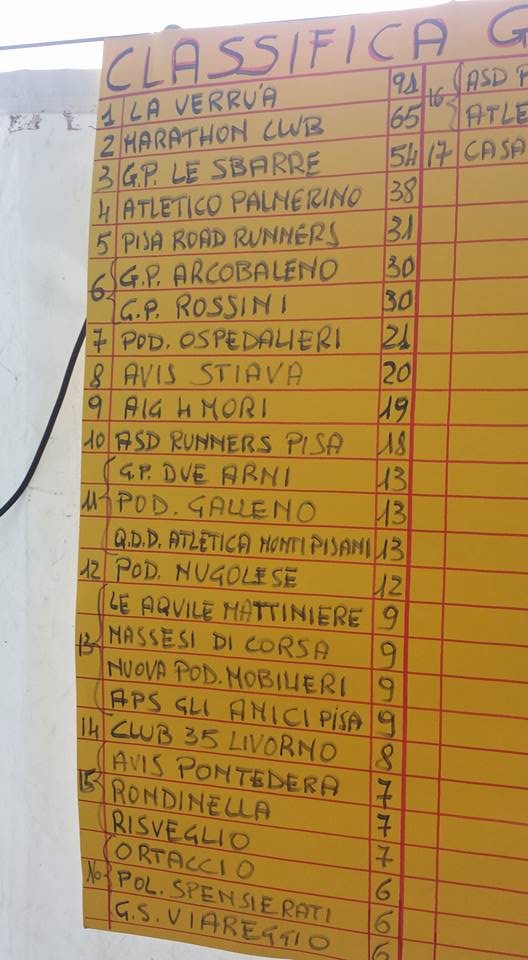 CLASSIFICA G
1 LA VERRU'A 91
2 MARATHON CLUB 65
3 G.P. LE SBARRE 54
4 ATLETICO PALMERINO 38
5 PISA ROAD RUNNERS 31
6 G.P. ARCOBALENO 30
G.P. ROSSINI 30
7 POD. OSPEDALIERI 21
8 AVIS STIAVA 20
9 AIG 4 MORI 19
10 ASD RUNNERS PISA 18
G.P. DUE ARNI 13
11 POD. GALLENO 13
Q.D.D. ATLETICA MONTI PISANI 13
12 POD. NUGOLESE 12
LE AQUILE MATTINIERE 9
13 MASSESI DI CORSA 9
NUOVA POD. MOBILIERI 9
APS GLI AMICI PISA 9
14 CLUB 35 LIVORNO 8
AVIS PONTEDERA 7
15 RONDINELLA 7
RISVEGLIO 7
ORTACCIO 6
16 POL. SPENSIERATI 6
G.S. VIAREGGIO 6
16 ASD P
ATLE
17 CASA